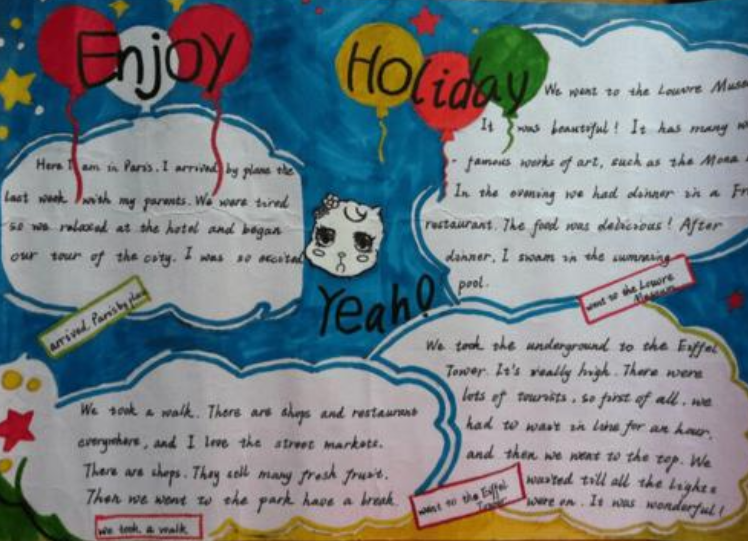 Enjoy
Holiday
Here I am in Paris. I arrived by plane the
last week with my parents. We were tired
so we relaxed at the hotel and began
our tour of the city. I was so excited
arrived Paris by plan
Yeah!
We went to the Louvre Muse
It was beautiful! It has many
- famous works of art, such as the Mona
In the evening we had dinner in a Fr
restaurant. The food was delicious! After
dinner, I swam in the swmming
pool.
went to the Louvre
Museum
We took a walk. There are shops and restaurant
everywhere, and I love the street markets.
There are shops. They sell many fresh fruit.
Then we went to the park have a break.
we took a walk
We took the underground to the Eiffel
Tower. It's really high. There were
lots of tourists, so first of all, we
had to wait in line for an hour,
and then we went to the top. We
waited till all the lights
were on. It was wonderful!
went to the Eiffel
Tower